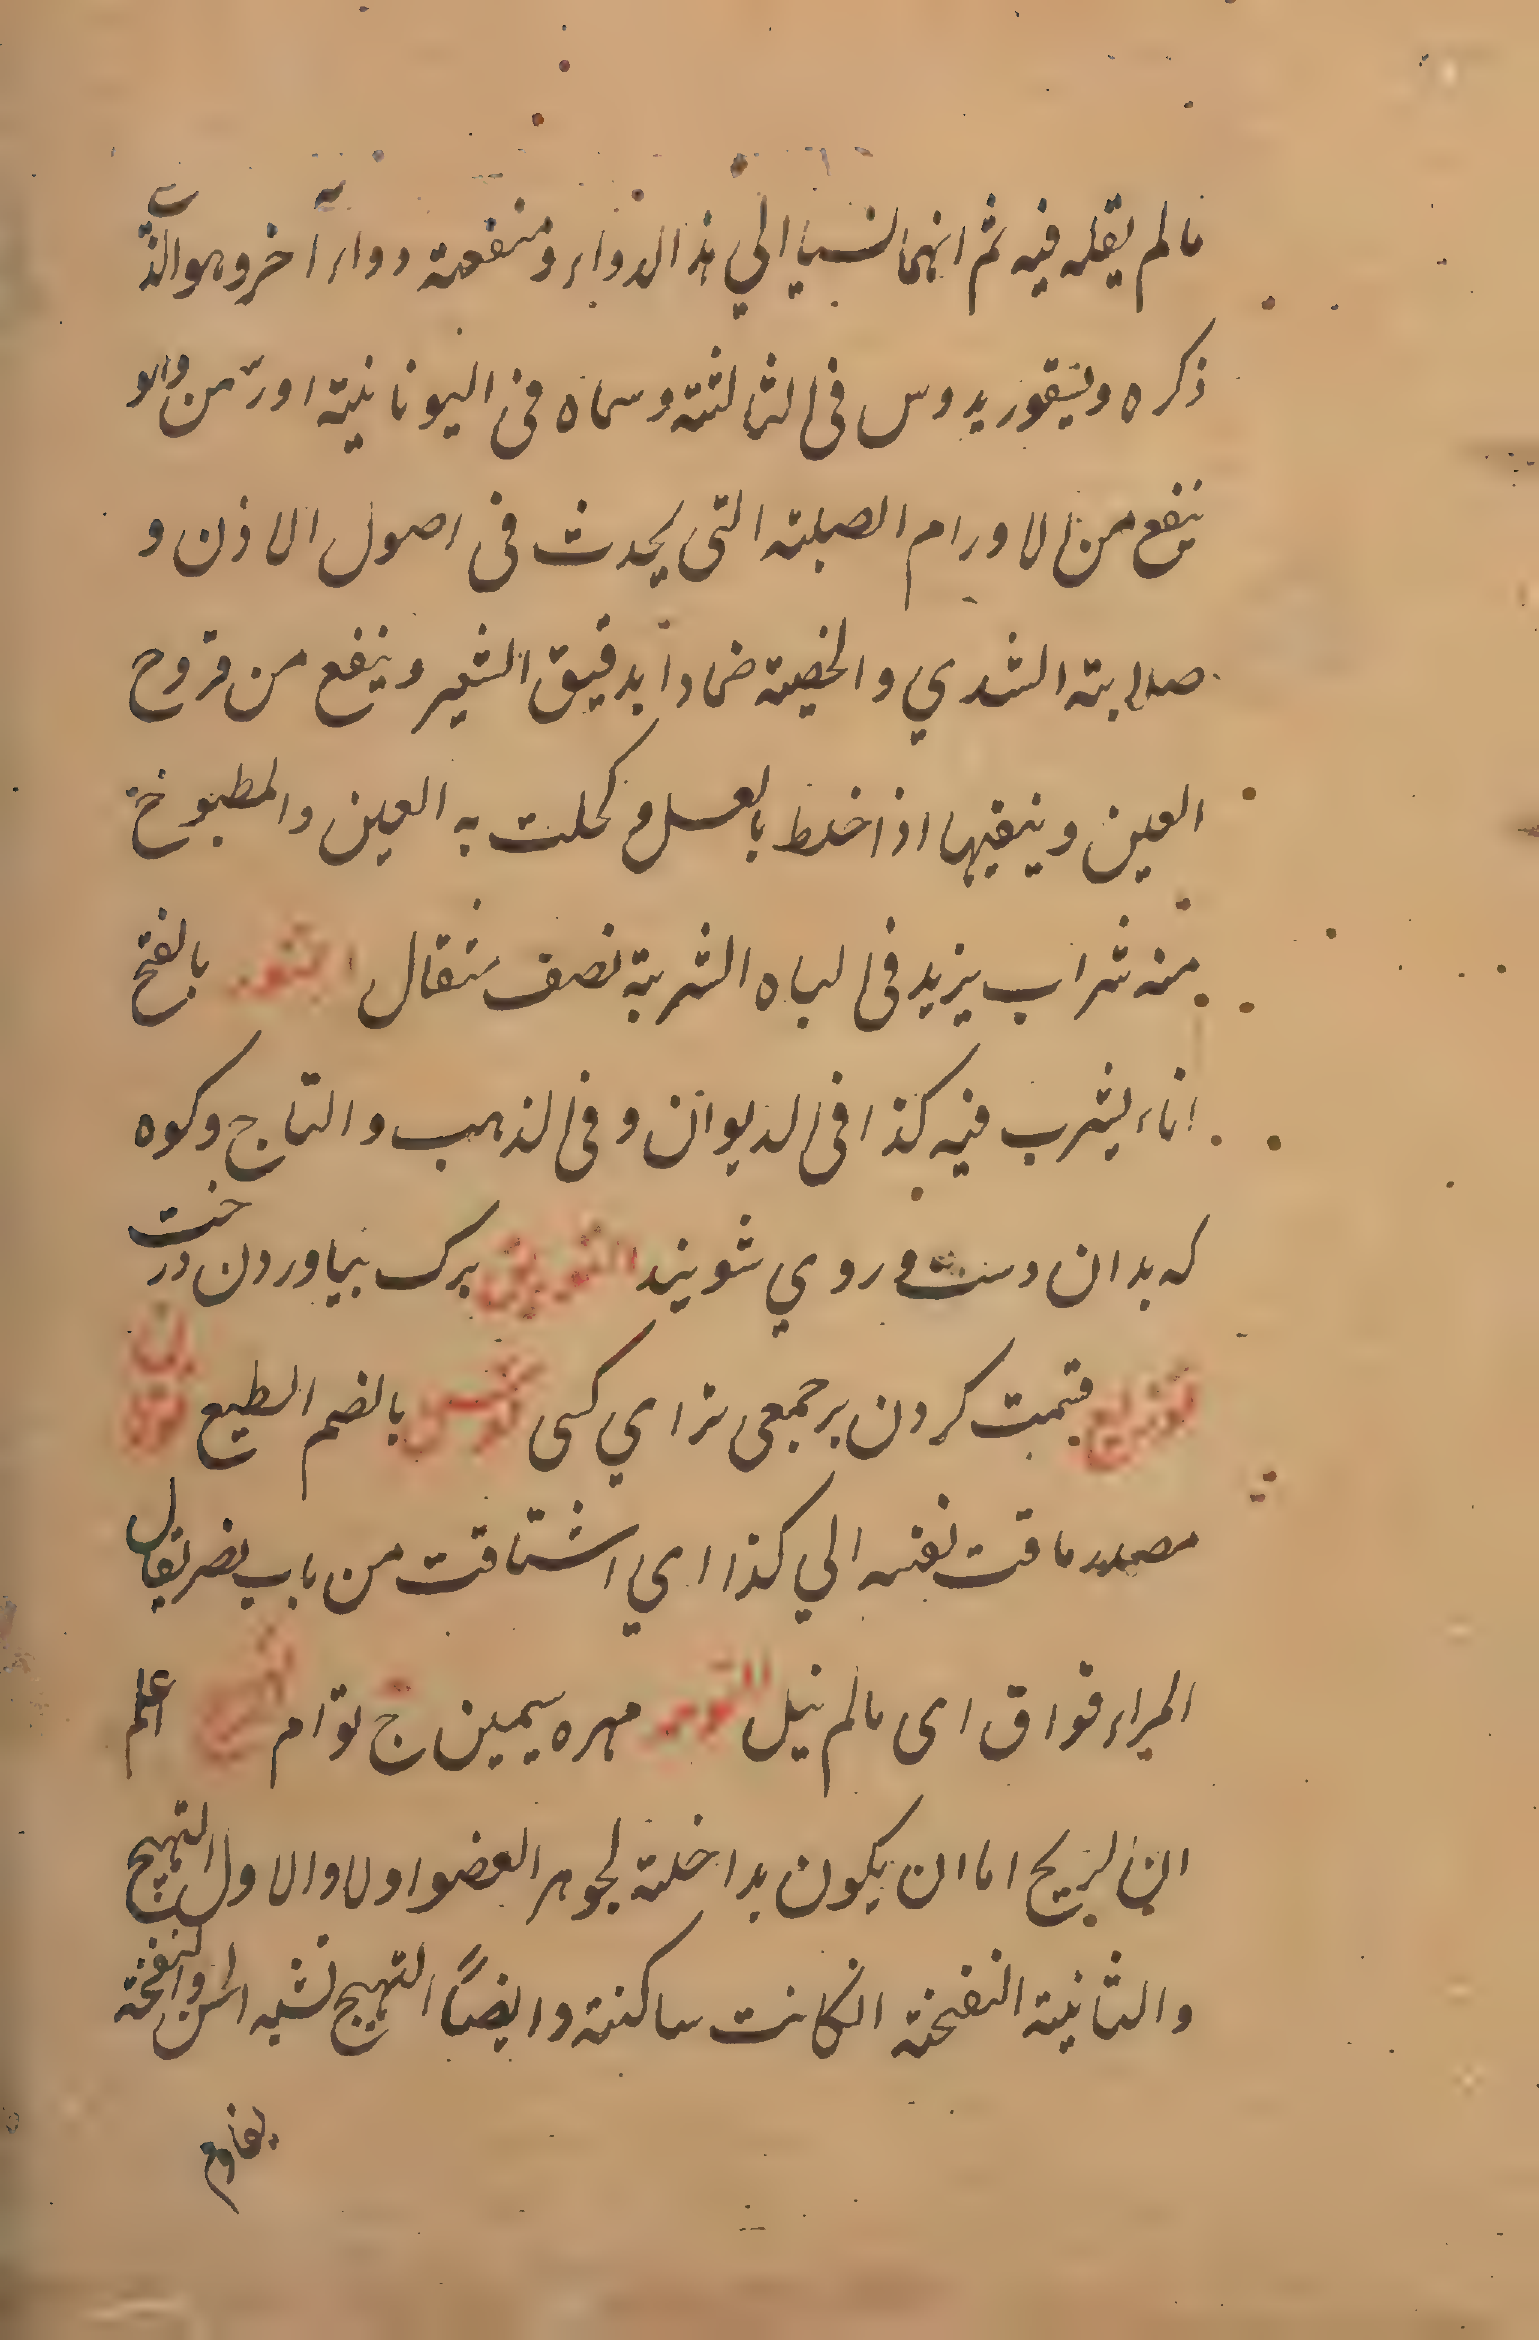 مالم يقله فيه ثم انهما نسبا الي هذا الدواء ومنفعة دواء آخر وهو الذي
ذكره ديسقوريدوس في الثالثة وسماه في اليونانية اورمن وهو
ينفع من الاورام الصلبة التى يحدث في اصول الاذن و
صلابة الثدي والخصية ضمادا بدقيق الشعير وينفع من قروح
العين وينقيها اذا خلط بالعسل و كحلت به العين والمطبوخ
منه شراب يزيد في الباه الشربة نصف مثقال التور بالفتح
اناء يشرب فيه كذا في الديوان وفي الذهب والتاج وكوه
كه بدان دست و روي شويند التوريق برك بياوردن درخت
توزيع قسمت كردن بر جمعى براي كسى توس بالضم الطبع
مصدر ماقت نفسه الي كذا اي اشتاقت من باب نصر يقال
المراء تواق اى مالم ينل التوم مهره سيمين ج توام التهيج اعلم
ان الريح اما ان يكون بداخلة لجوهر العضو اولا والاول التهيج
والثانية النفخة ان كانت ساكنة وايضاً التهيج نشبه اللين والنفخة
يقاوم